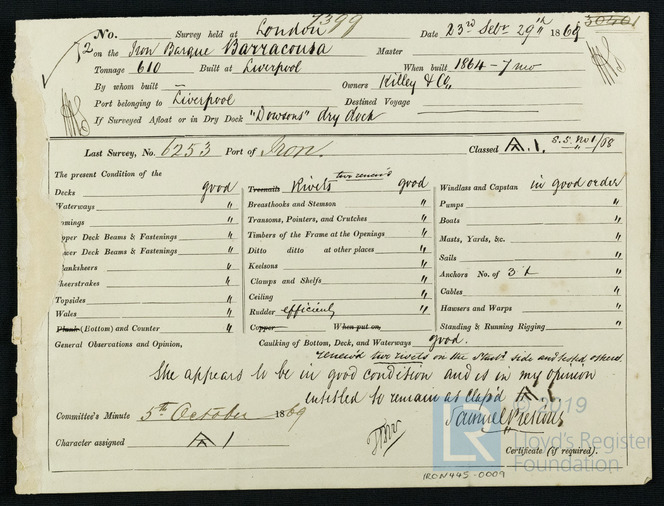 No. Survey held at London 7399 Date 23rd Sebr 29th 1869 30401
2 on the Iron Barque Barracouta Master
Tonnage 610 Built at Liverpool When built 1864-7mo
By whom built — Owners Killey & Co.
Port belonging to Liverpool Destined Voyage
If Surveyed Afloat or in Dry Dock "Dowsons" dry dock
Last Survey, No. 6253 Port of Iron. Classed A.1. S.S. No1/68
The present Condition of the two renew'd
Decks good Treenails Rivets good Windlass and Capstan in good order
Waterways " Breasthooks and Stemson " Pumps "
omings " Transoms, Pointers, and Crutches " Boats "
pper Deck Beams & Fastenings " Timbers of the Frame at the Openings " Masts, Yards, &c. "
ower Deck Beams & Fastenings " Ditto ditto at other places " Sails "
lanksheers " Keelsons " Anchors No. of 3 "
heerstrakes " Clamps and Shelfs " Cables "
Topsides " Ceiling " Hawsers and Warps "
Wales " Rudder efficient " Standing & Running Rigging "
Plank (Bottom) and Counter " Copper When put on,
General Observations and Opinion, Caulking of Bottom, Deck, and Waterways good.
renew'd two rivets on the Starbd side and tested others.
She appears to be in good condition and is in my opinion
entitled to remain as Class'd A.1.
Committee's Minute 5th October 1869
Character assigned A 1
Certificate (if required).
© 2019
LR Lloyd's Register
Foundation
IRON445-0009